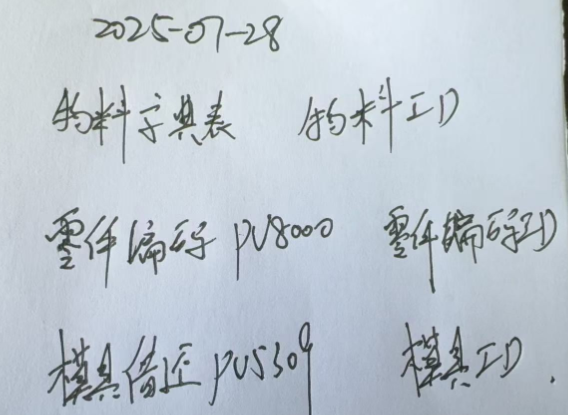 2025-07-28
物料字典表 物料ID
零件编码 PV8000 零件编码ID
模具借还 PV5309 模具ID.